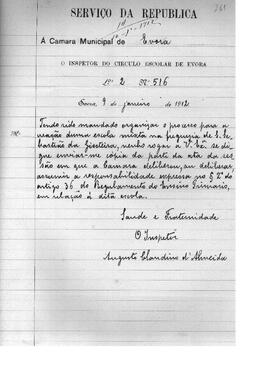 261
SERVIÇO DA REPUBLICA
1-1-1912
Á Camara Municipal de Evora
O INSPETOR DO CIRCULO ESCOLAR DE EVORA
Lº 2 Nº 516
Evora, 9 de janeiro de 1912
Tendo sido mandado organizar o processo para a
creação duma escola mixta na freguezia de S. Se-
bastião da Giesteira, venho rogar a V. Exª se di-
gne enviar-me cópia da parte da ata da ses-
são em que a Camara deliberou, ou deliberar,
assumir a responsabilidade expressa no § 2º do
artigo 36 do Regulamento do Ensino Primario,
em relação á dita escola.
Saude e Fraternidade
O Inspetor
Augusto Claudino d'Almeida